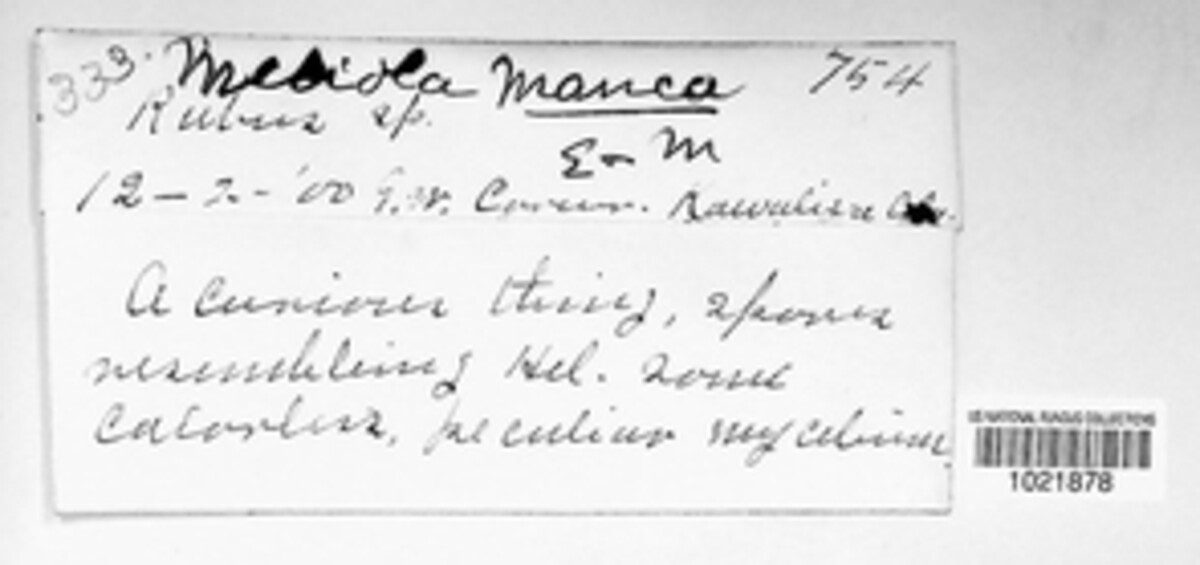 333. Meliola manca 754
Rubus sp.
E & M
12 - 2 - '00 G.W. Carver.
A curious thing, spores
resembling Hel. some
colorless, peculiar mycelium
US NATIONAL FUNGUS COLLECTIONS
1021878